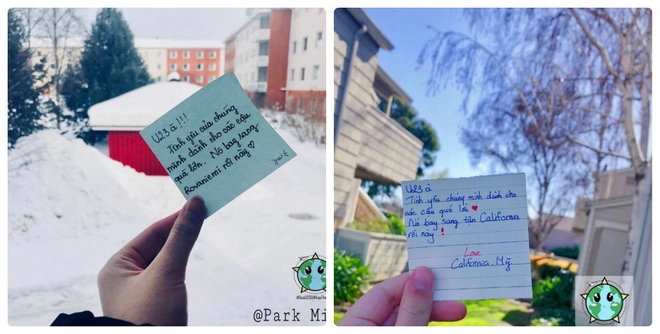 U23 à!!!
Tình yêu của chúng
mình dành cho các cậu
quá lớn. Nó bay sang
Rovaniemi rồi này ♡
@Park Mi
U23 à
Tình yêu chúng mình dành cho
các cậu quá lớn ♥
Nó bay sang tận California
rồi này !
Love
California. Mỹ